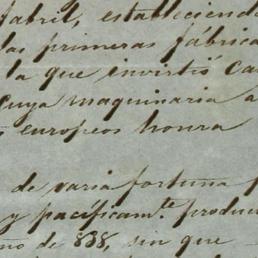 fabril, estableciendo
las primeras fábrica
la que invirtió Ca
cuya maquinaria a
europeos honra
de varia fortuna
y pacíficam.te produc
no de 838, sin que